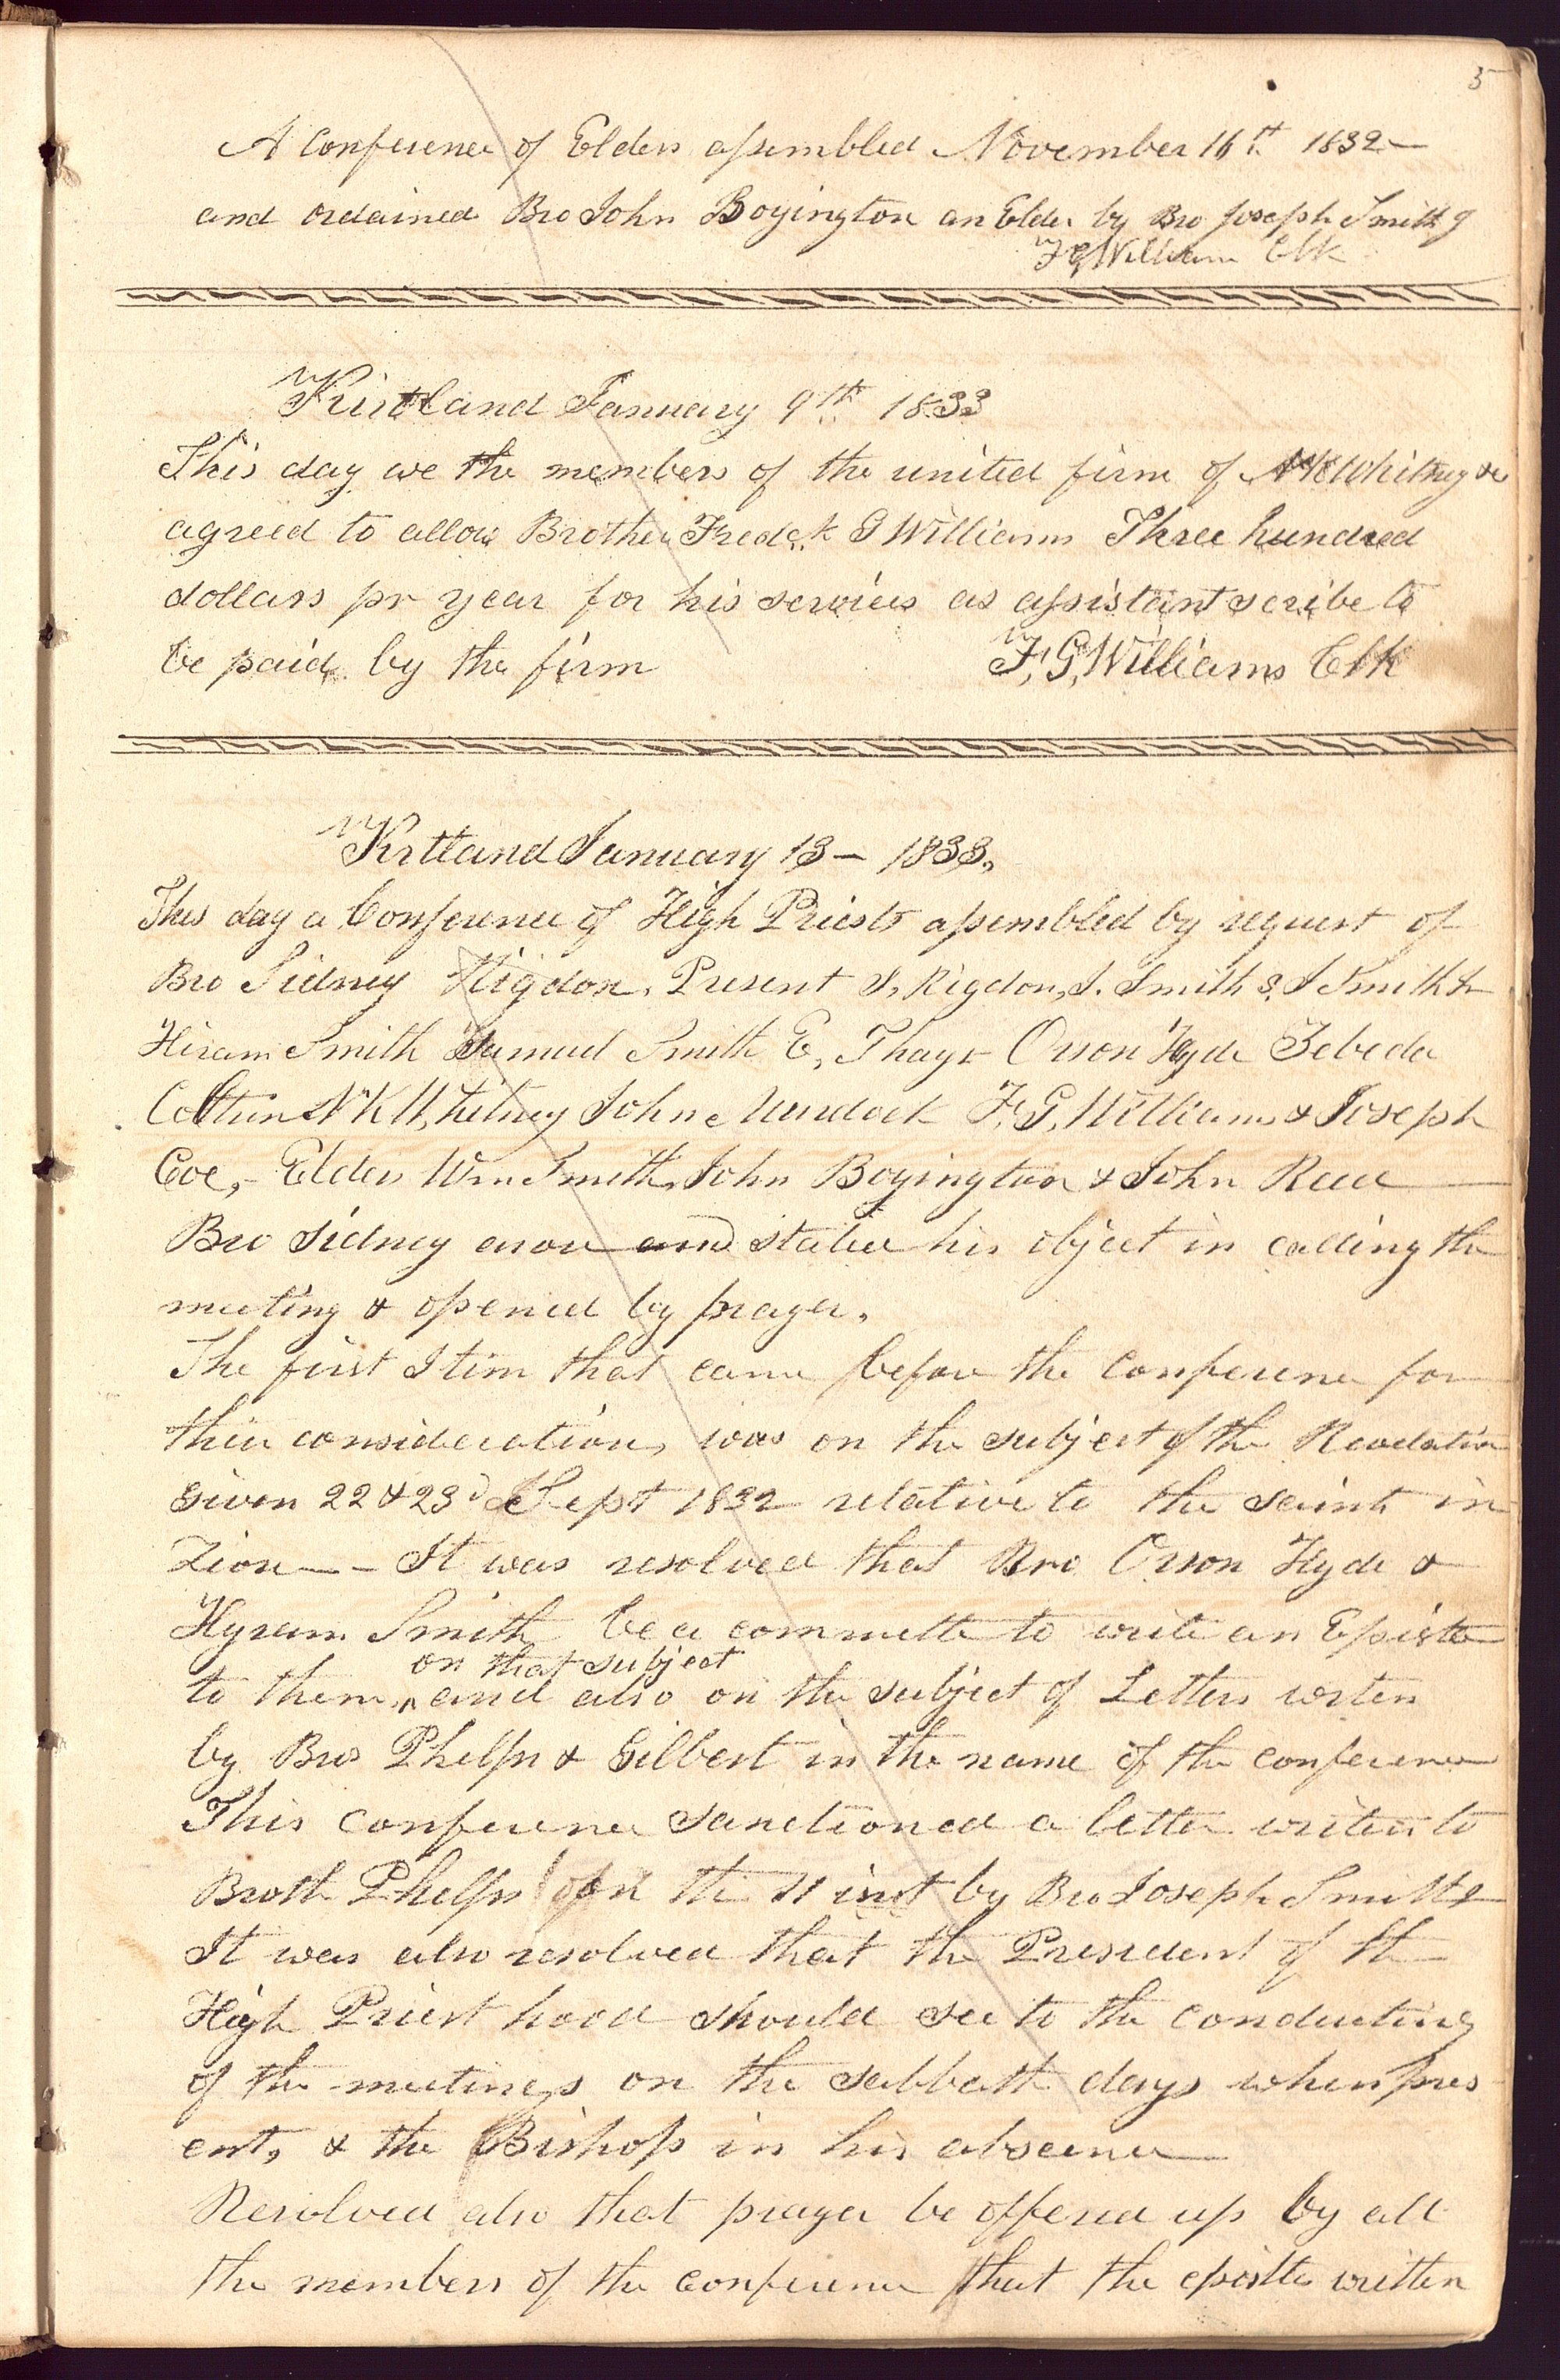 5
A conference of Elders assembled November 16th 1832—
and ordained Bro John Boyington an Elder by Bro Joseph Smith J
F G William Clk
Kirtland January 9th 1833
This day we the members of the united firm of N K Whitney &c
agreed to allow Brother Fredck G Williams Three hundred
dollars pr year for his services as assistant scribe to
be paid by the firm
F, G, Williams Clk
Kirtland January 13— 1833,
This day a Conference of High Priests assembled by request of
Bro Sidney Rigdon, Present S, Rigdon, J. Smith S, J Smith Jr
Hiram Smith Samuel Smith E, Thayr Orson Hyde Zebede
Coltrin N K Whitney John Murdock F, G, Williams & Joseph
Coe,— Elders Wm Smith, John Boyington & John Reed
Bro Sidney arose and stated his object in calling the
meeting & opened by prayer,
The first Item that came before the conference for
their consideration, was on the subject of the Revelation
Given 22 & 23d Sept 1832 relative to the saints in
Zion—— It was resolved that Bro Orson Hyde &
Hyrum Smith be a committe to write an Epistle
on that subject
to them, ^ and also on the subject of Letters writen
by Bros Phelps & Gilbert in the name of the conference
This conference sanctioned a letter writen to
Broth Phelps on the 11 inst by Bro Joseph Smith
It was also resolved that the President of the
High Priest hood should see to the conducting
of the meetings on the sabbath days when pres
ent, & the Bishop in his absence
Resolved also that prayer be offered up by all
the members of the conference that the epistle written